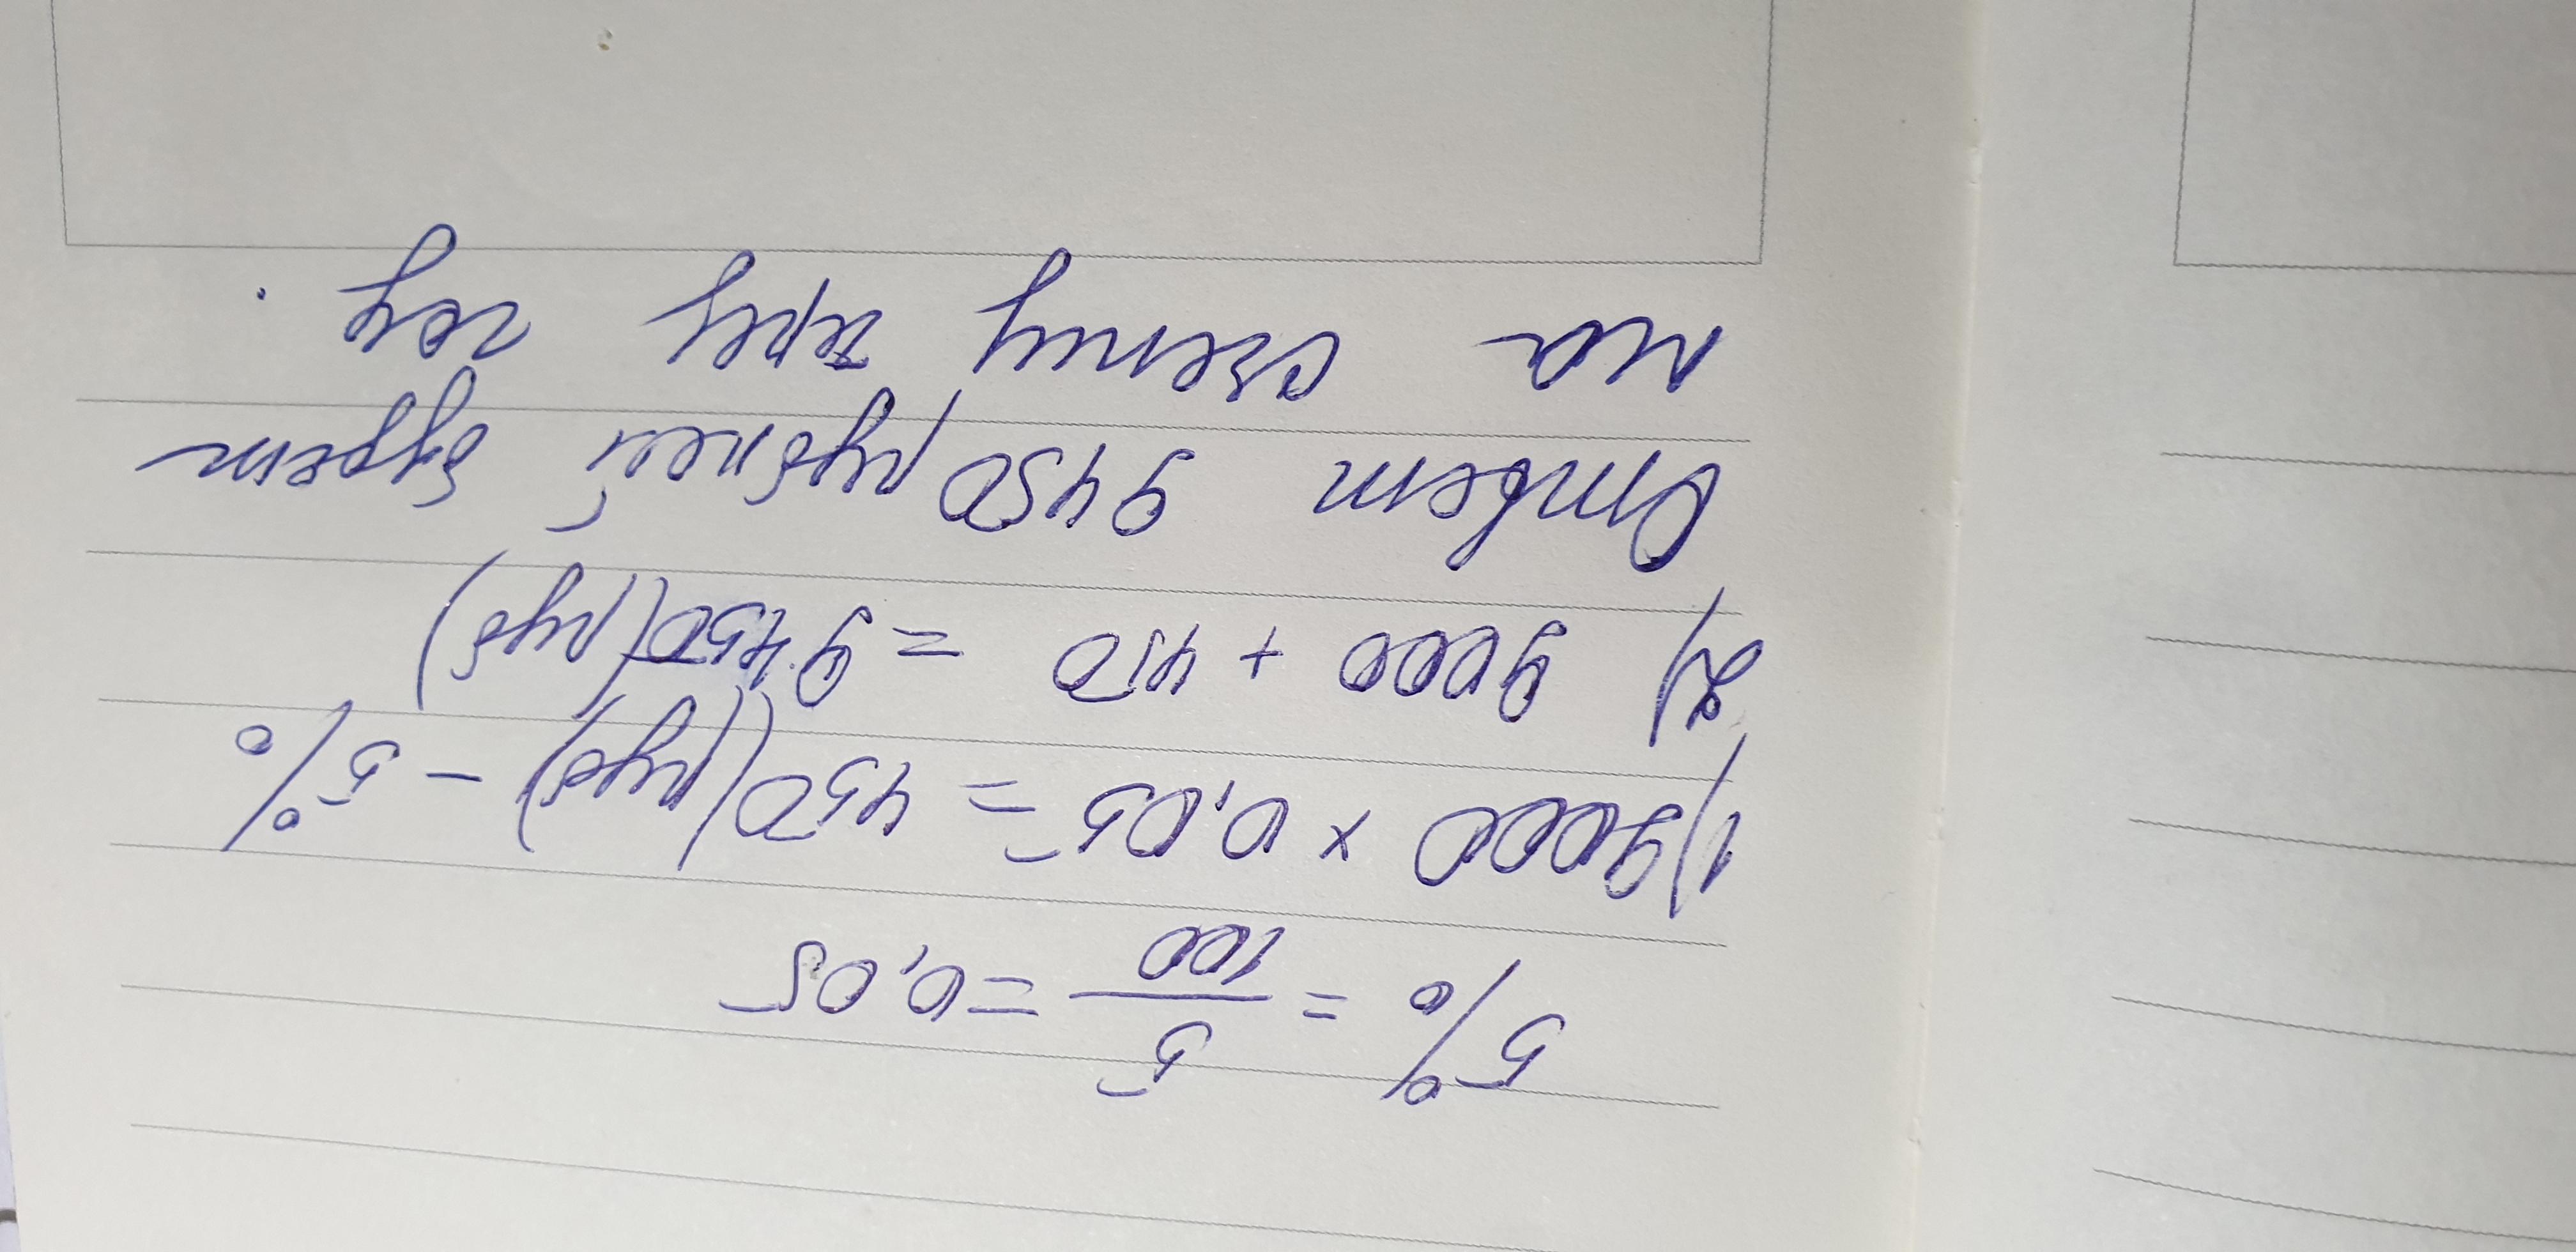 5% = 5/100 = 0,05
1) 9000 × 0,05 = 450 (руб) – 5%
2) 9000 + 450 = 9450 (руб)
Ответ 9450 рублей будет
на счету через год.